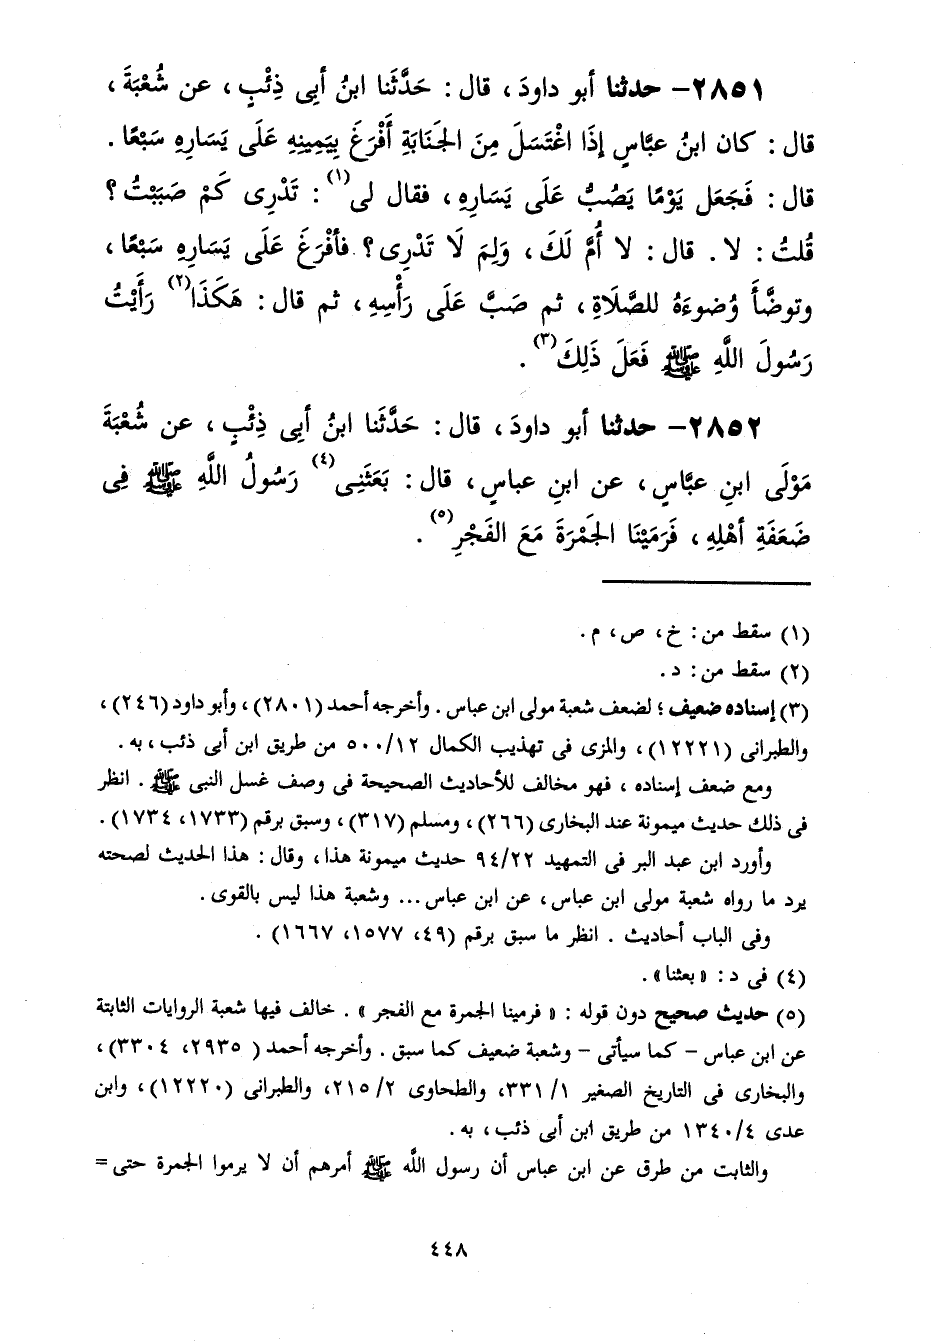 ٢٨٥١- حدثنا أبو داودَ، قال: حَدَّثَنا ابنُ أبى ذِئْبٍ، عن شُعْبَةَ،
قال: كان ابنُ عبَّاسٍ إذَا اغْتَسَلَ مِنَ الجَنَابَةِ أَفْرَغَ بِيَمِينِهِ عَلَى يَسَارِهِ سَبْعًا.
قال: فَجَعَل يَوْمًا يَصُبُّ عَلَى يَسَارِهِ، فقال لى(١): تَدْرِى كَمْ صَبَبْتُ؟
قُلتُ: لا. قال: لا أُمَّ لَكَ، وَلِمَ لَا تَدْرِى؟ فأفْرَغَ عَلَى يَسَارِهِ سَبْعًا،
وتوضَّأَ وُضوءَهُ للصَّلَاةِ، ثم صَبَّ عَلَى رَأْسِهِ، ثم قال: هَكَذَا(٢) رَأَيْتُ
رَسُولَ اللَّهِ ﷺ فَعَلَ ذَلِكَ(٣).
٢٨٥٢- حدثنا أبو داودَ، قال: حَدَّثَنا ابنُ أبى ذِئْبٍ، عن شُعْبَةَ
مَوْلَى ابنِ عبَّاسٍ، عن ابنِ عباسٍ، قال: بَعَثَنِى(٤) رَسُولُ اللَّهِ ﷺ فِى
ضَعَفَةِ أهْلِهِ، فَرَمَيْنَا الجَمْرَةَ مَعَ الفَجْرِ(٥).
(١) سقط من: خ، ص، م.
(٢) سقط من: د.
(٣) إسناده ضعيف؛ لضعف شعبة مولى ابن عباس. وأخرجه أحمد (٢٨٠١)، وأبو داود (٢٤٦)،
والطبرانى (١٢٢٢١)، والمزى فى تهذيب الكمال ٥٠٠/١٢ من طريق ابن أبى ذئب، به.
ومع ضعف إسناده، فهو مخالف للأحاديث الصحيحة فى وصف غسل النبى ﷺ. انظر
فى ذلك حديث ميمونة عند البخارى (٢٦٦)، ومسلم (٣١٧)، وسبق برقم (١٧٣٣، ١٧٣٤).
وأورد ابن عبد البر فى التمهيد ٩٤/٢٢ حديث ميمونة هذا، وقال: هذا الحديث لصحته
يرد ما رواه شعبة مولى ابن عباس، عن ابن عباس... وشعبة هذا ليس بالقوى.
وفى الباب أحاديث. انظر ما سبق برقم (٤٩، ١٥٧٧، ١٦٦٧).
(٤) فى د: «بعثنا».
(٥) حديث صحيح دون قوله: «فرمينا الجمرة مع الفجر». خالف فيها شعبة الروايات الثابتة
عن ابن عباس - كما سيأتى - وشعبة ضعيف كما سبق. وأخرجه أحمد (٢٩٣٥، ٣٣٠٤)،
والبخارى فى التاريخ الصغير ٣٣١/١، والطحاوى ٢١٥/٢، والطبرانى (١٢٢٢٠)، وابن
عدى ١٣٤٠/٤ من طريق ابن أبى ذئب، به.
والثابت من طرق عن ابن عباس أن رسول اللَّه ﷺ أمرهم أن لا يرموا الجمرة حتى =
٤٤٨